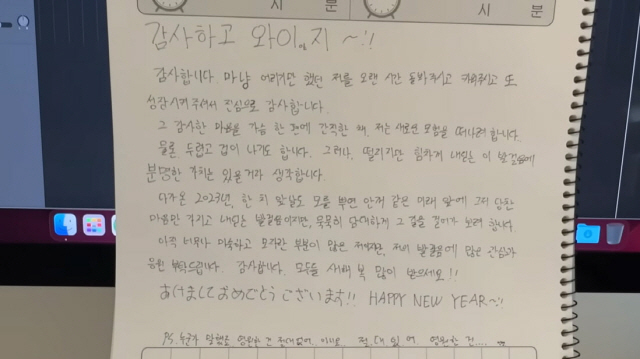 시 분 시 분
감사하고 와이지 ~!!
감사합니다. 마냥 어리기만 했던 저를 오랜 시간 돌봐주시고 키워주시고 또
성장시켜 주셔서 진심으로 감사합니다.
그 감사한 마음을 가슴 한 켠에 간직한 채, 저는 새로운 모험을 떠나려 합니다.
물론, 두렵고 겁이 나기도 합니다. 그러나, 떨리지만 힘차게 내딛는 이 발걸음에
분명한 가치는 있을거라 생각합니다.
다가온 2023년, 한 치 앞날도 모를 뿌연 안개 같은 미래 앞에 그저 담담한
마음만 가지고 내딛는 발걸음이지만, 묵묵히 담대하게 그 길을 걸어가 보려 합니다.
아직 너무나 미숙하고 모자란 부분이 많은 저이지만, 저의 발걸음에 많은 관심과
응원 부탁드립니다. 감사합니다. 모두들 새해 복 많이 받으세요!!
あけましておめでとうございます!! HAPPY NEW YEAR~!
P.S. 누군가 말했죠 영원한 건 절대 없어. 이제는 절 대 있 어 영원한 건....